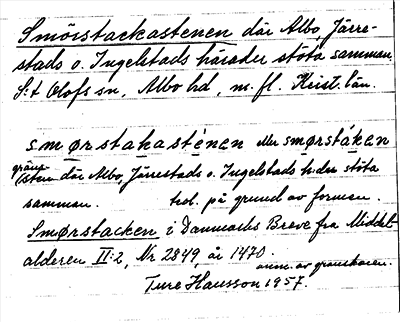 Smörstackastenen där Albo, Järre-
stads o. Ingelstads härader stöta samman.
S:t Olofs sn, Albo hd, m. fl. Krist. län.
smørstakasténen eller smørstáken
gräns-
sten där Albo, Järrestads o. Ingelstads h:der stöta
samman. trol. på grund av formen.
Smørstacken i Danmarks Breve fra Middel-
alderen II:2, Nr 2849 år 1470.
anm. av granskaren.
Ture Hansson 1957.